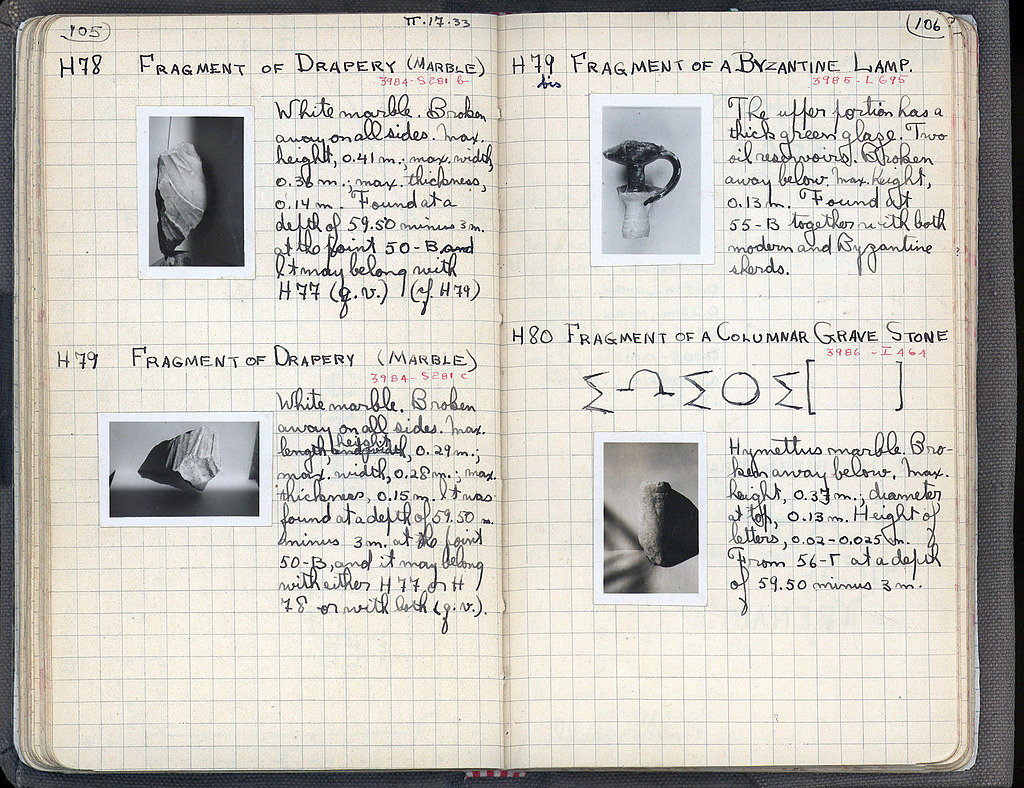 105
II.17.33
H78 FRAGMENT OF DRAPERY (MARBLE)
3984-S281 b
White marble. Broken
away on all sides. Max.
height, 0.41 m.; max. width,
0.36 m.; max. thickness,
0.14 m. Found at a
depth of 59.50 minus 3 m.
at the point 50-B and
It may belong with
H77 (q.v.) (cf. H79)
H79 FRAGMENT OF DRAPERY (MARBLE)
3984-S281 c
White marble. Broken
away on all sides. Max.
height
length, and width, 0.29 m.;
max. width, 0.28 m.; max.
thickness, 0.15 m. It was
found at a depth of 59.50 m.
minus 3 m. at the point
50-B, and it may belong
with either H77 or H
78 or with both (q.v.).
106
H79 FRAGMENT OF A BYZANTINE LAMP.
bis
3985-L695
The upper portion has a
thick green glaze. Two
oil reservoirs. Broken
away below. Max. height,
0.13 m. Found at
55-B together with both
modern and Byzantine
sherds.
H80 FRAGMENT OF A COLUMNAR GRAVE STONE
3986-I 464
ΣΩΣΟΣ[ ]
Hymettus marble. Bro-
ken away below. Max.
height, 0.37 m.; diameter
at top, 0.13 m. Height of
letters, 0.02-0.025 m.
From 56-Γ at a depth
of 59.50 minus 3 m.